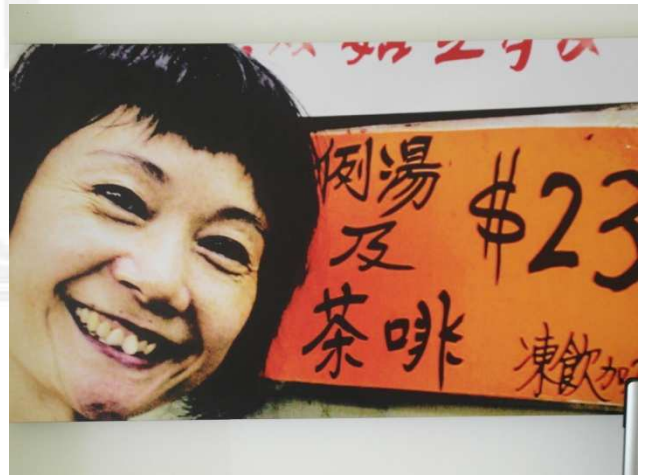 例湯
及
茶啡
$23
凍飲加